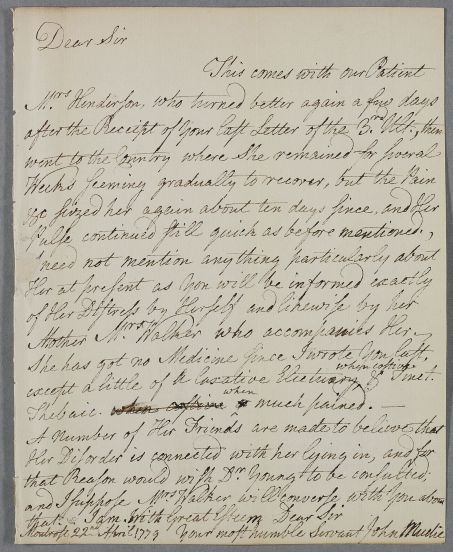 Dear Sir
This comes with our Patient
Mrs Henderson, who turned better again a few days
after the Receipt of Your last Letter of the 3rd Ult, then
went to the Country where She remained for several
Weeks seeming gradually to recover, but the Pain
seized her again about ten days since, and Her
Pulse continued still quick as before mentioned.,
I need not mention anything particularly about
Her at present as You will be informed exactly
of Her Distress by Herself and likewise by her
Mother Mrs Walker who accompanies Her.
She has got no Medicine since I wrote You last,
when costive
except a little of a Laxative Electuary & Tinct.
when
Thebaic. when costive much pained. —
A Number of Her Friends are made to believe that
Her Disorder is connected with her lying in, and for
that Reason would wish Dr Young to be consulted;
and I suppose Mrs Walker will converse with You about
that. I am With Great Esteem Dear Sir
Montrose 22nd April 1779 Your most humble Servant John